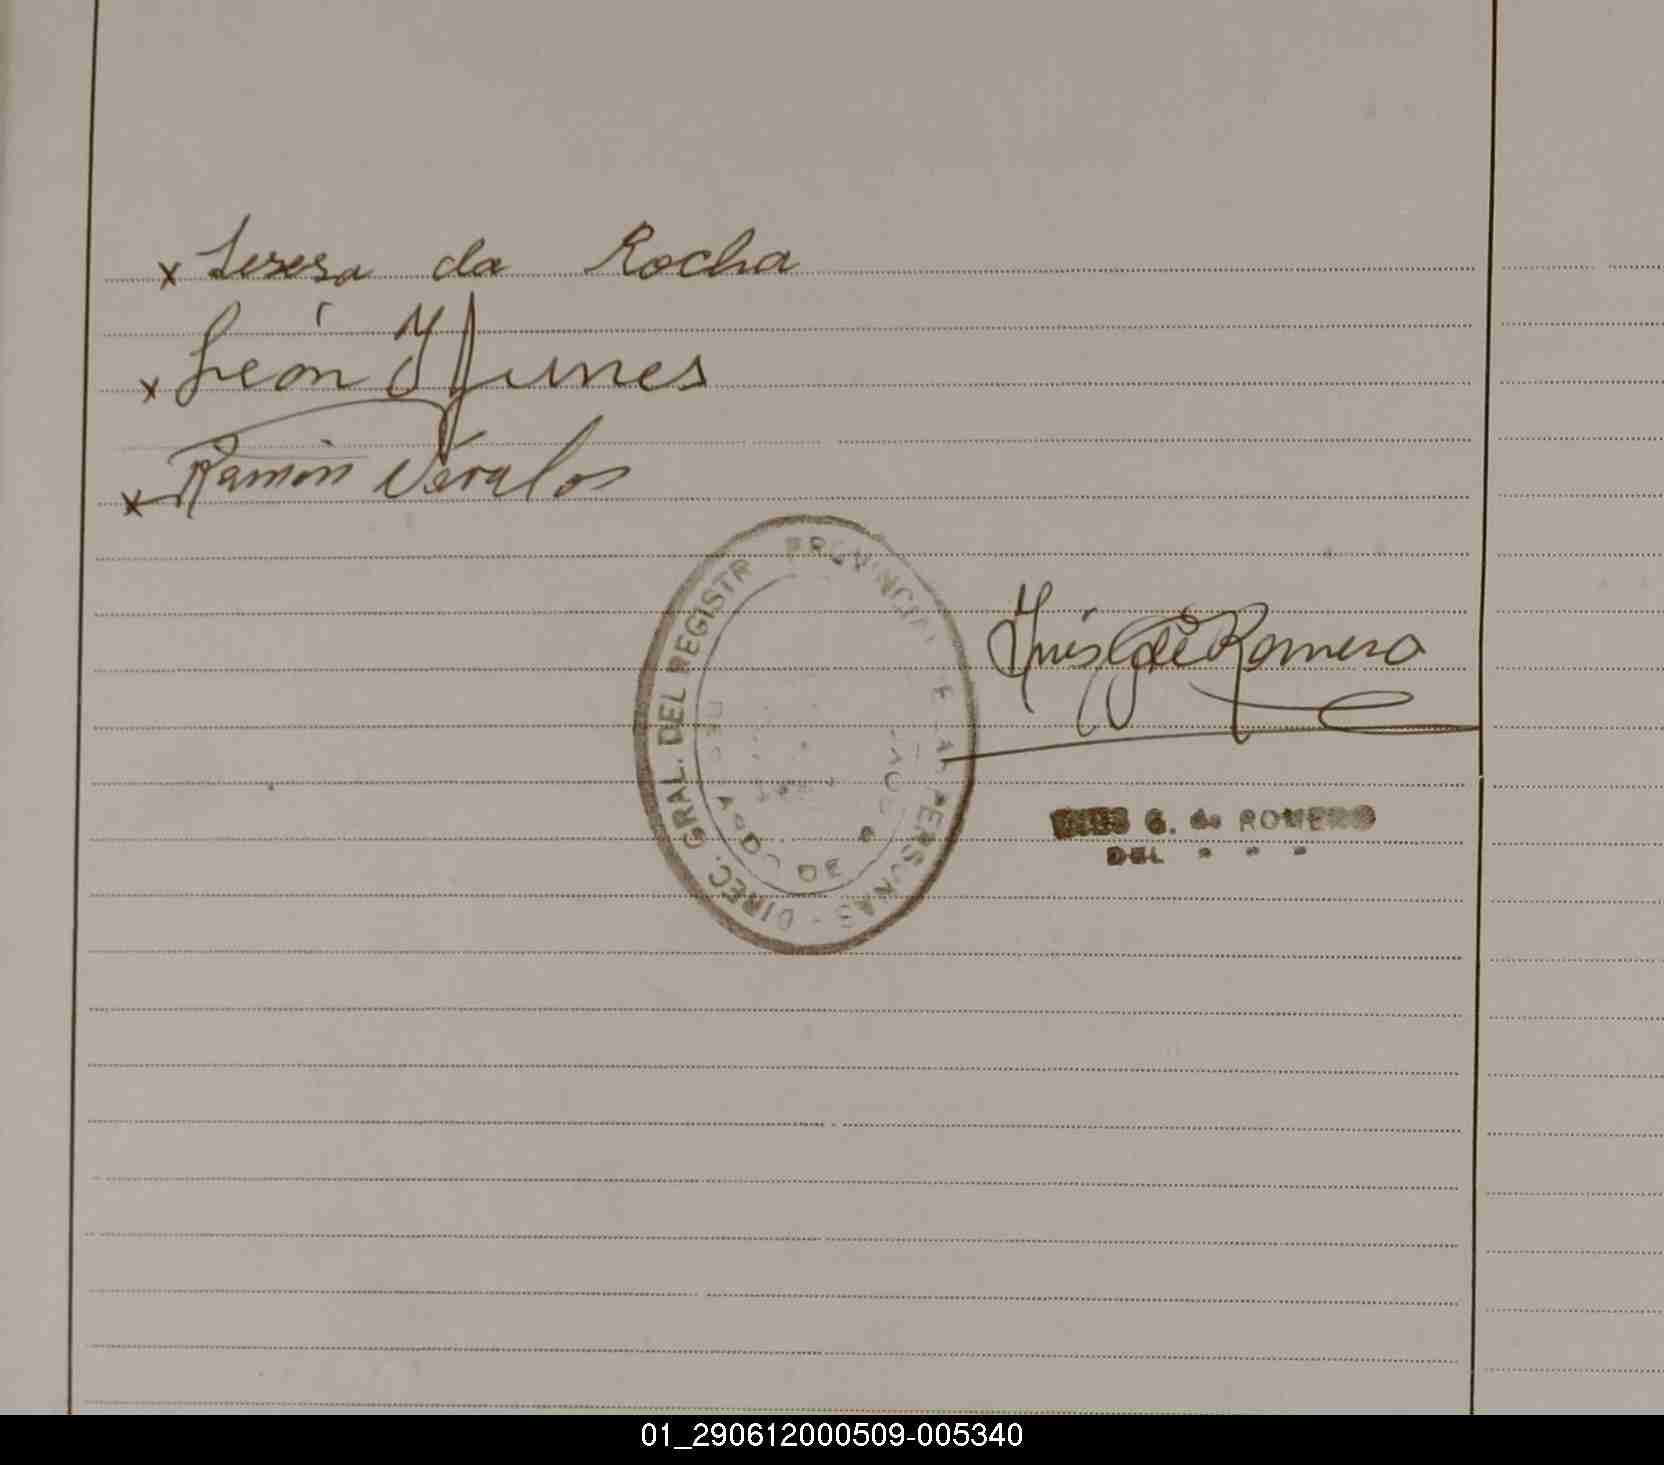 x Teresa da Rocha
x León Y Junes
x Ramón Veralos
DIREC. GRAL. DEL REGISTR PROVINCIAL DE LAS PERSONAS -
Inés G de Romero
INES G. de ROMERO
DEL
01_290612000509-005340